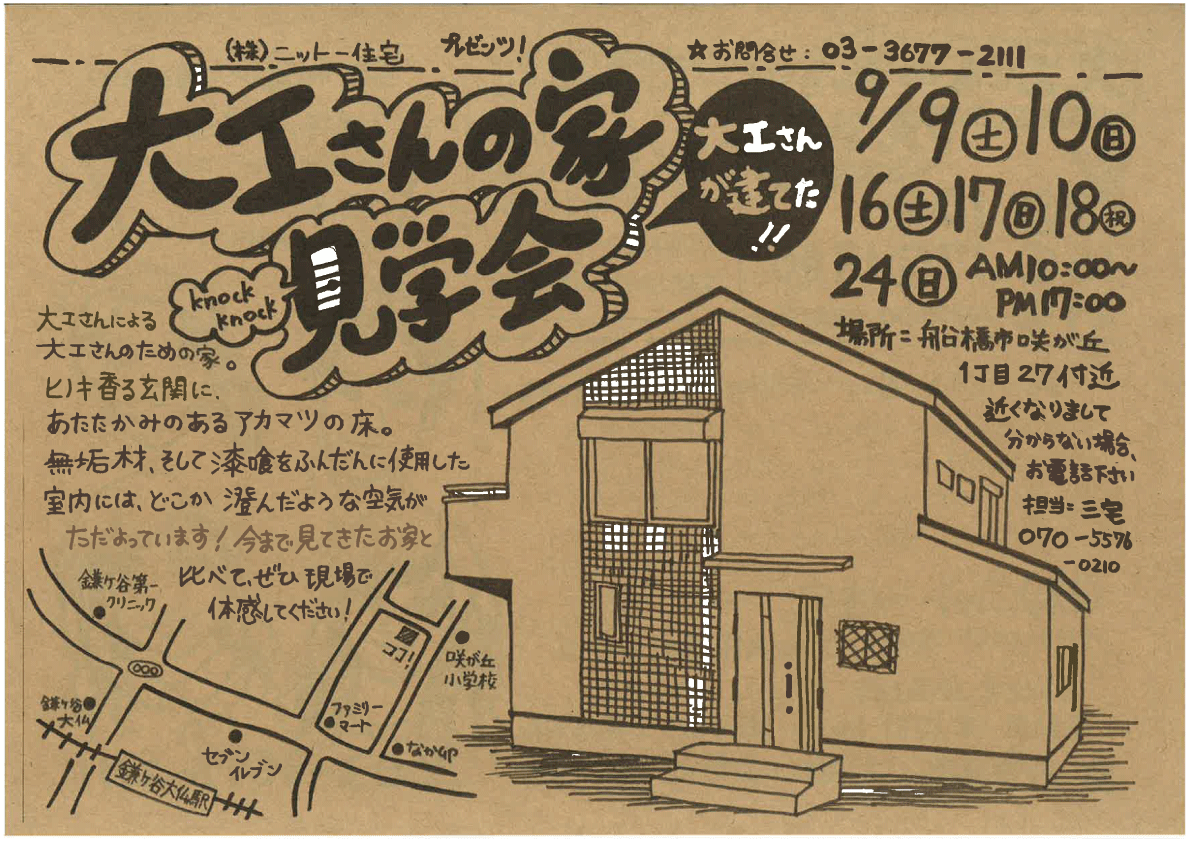 (株)ニットー住宅 プレゼンツ!
☆お問合せ: 03-3677-2111
大工さんの家
見学会
knock
knock
大工さん
が建てた
!!
9/9(土)10(日)
16(土)17(日)18(祝)
24(日) AM10:00~
PM17:00
場所=船橋市咲が丘
1丁目27付近
近くなりまして
分からない場合、
お電話下さい
担当=三宅
070-5576
-0210
大工さんによる
大工さんのための家。
ヒノキ香る玄関に、
あたたかみのあるアカマツの床。
無垢材、そして漆喰をふんだんに使用した
室内には、どこか澄んだような空気が
ただよっています!今まで見てきたお家と
比べて、ぜひ現場で
体感してください!
鎌ヶ谷第一
クリニック
ココ!
咲が丘
小学校
鎌ヶ谷
大仏
ファミリー
マート
なか卯
セブン
イレブン
鎌ヶ谷大仏駅